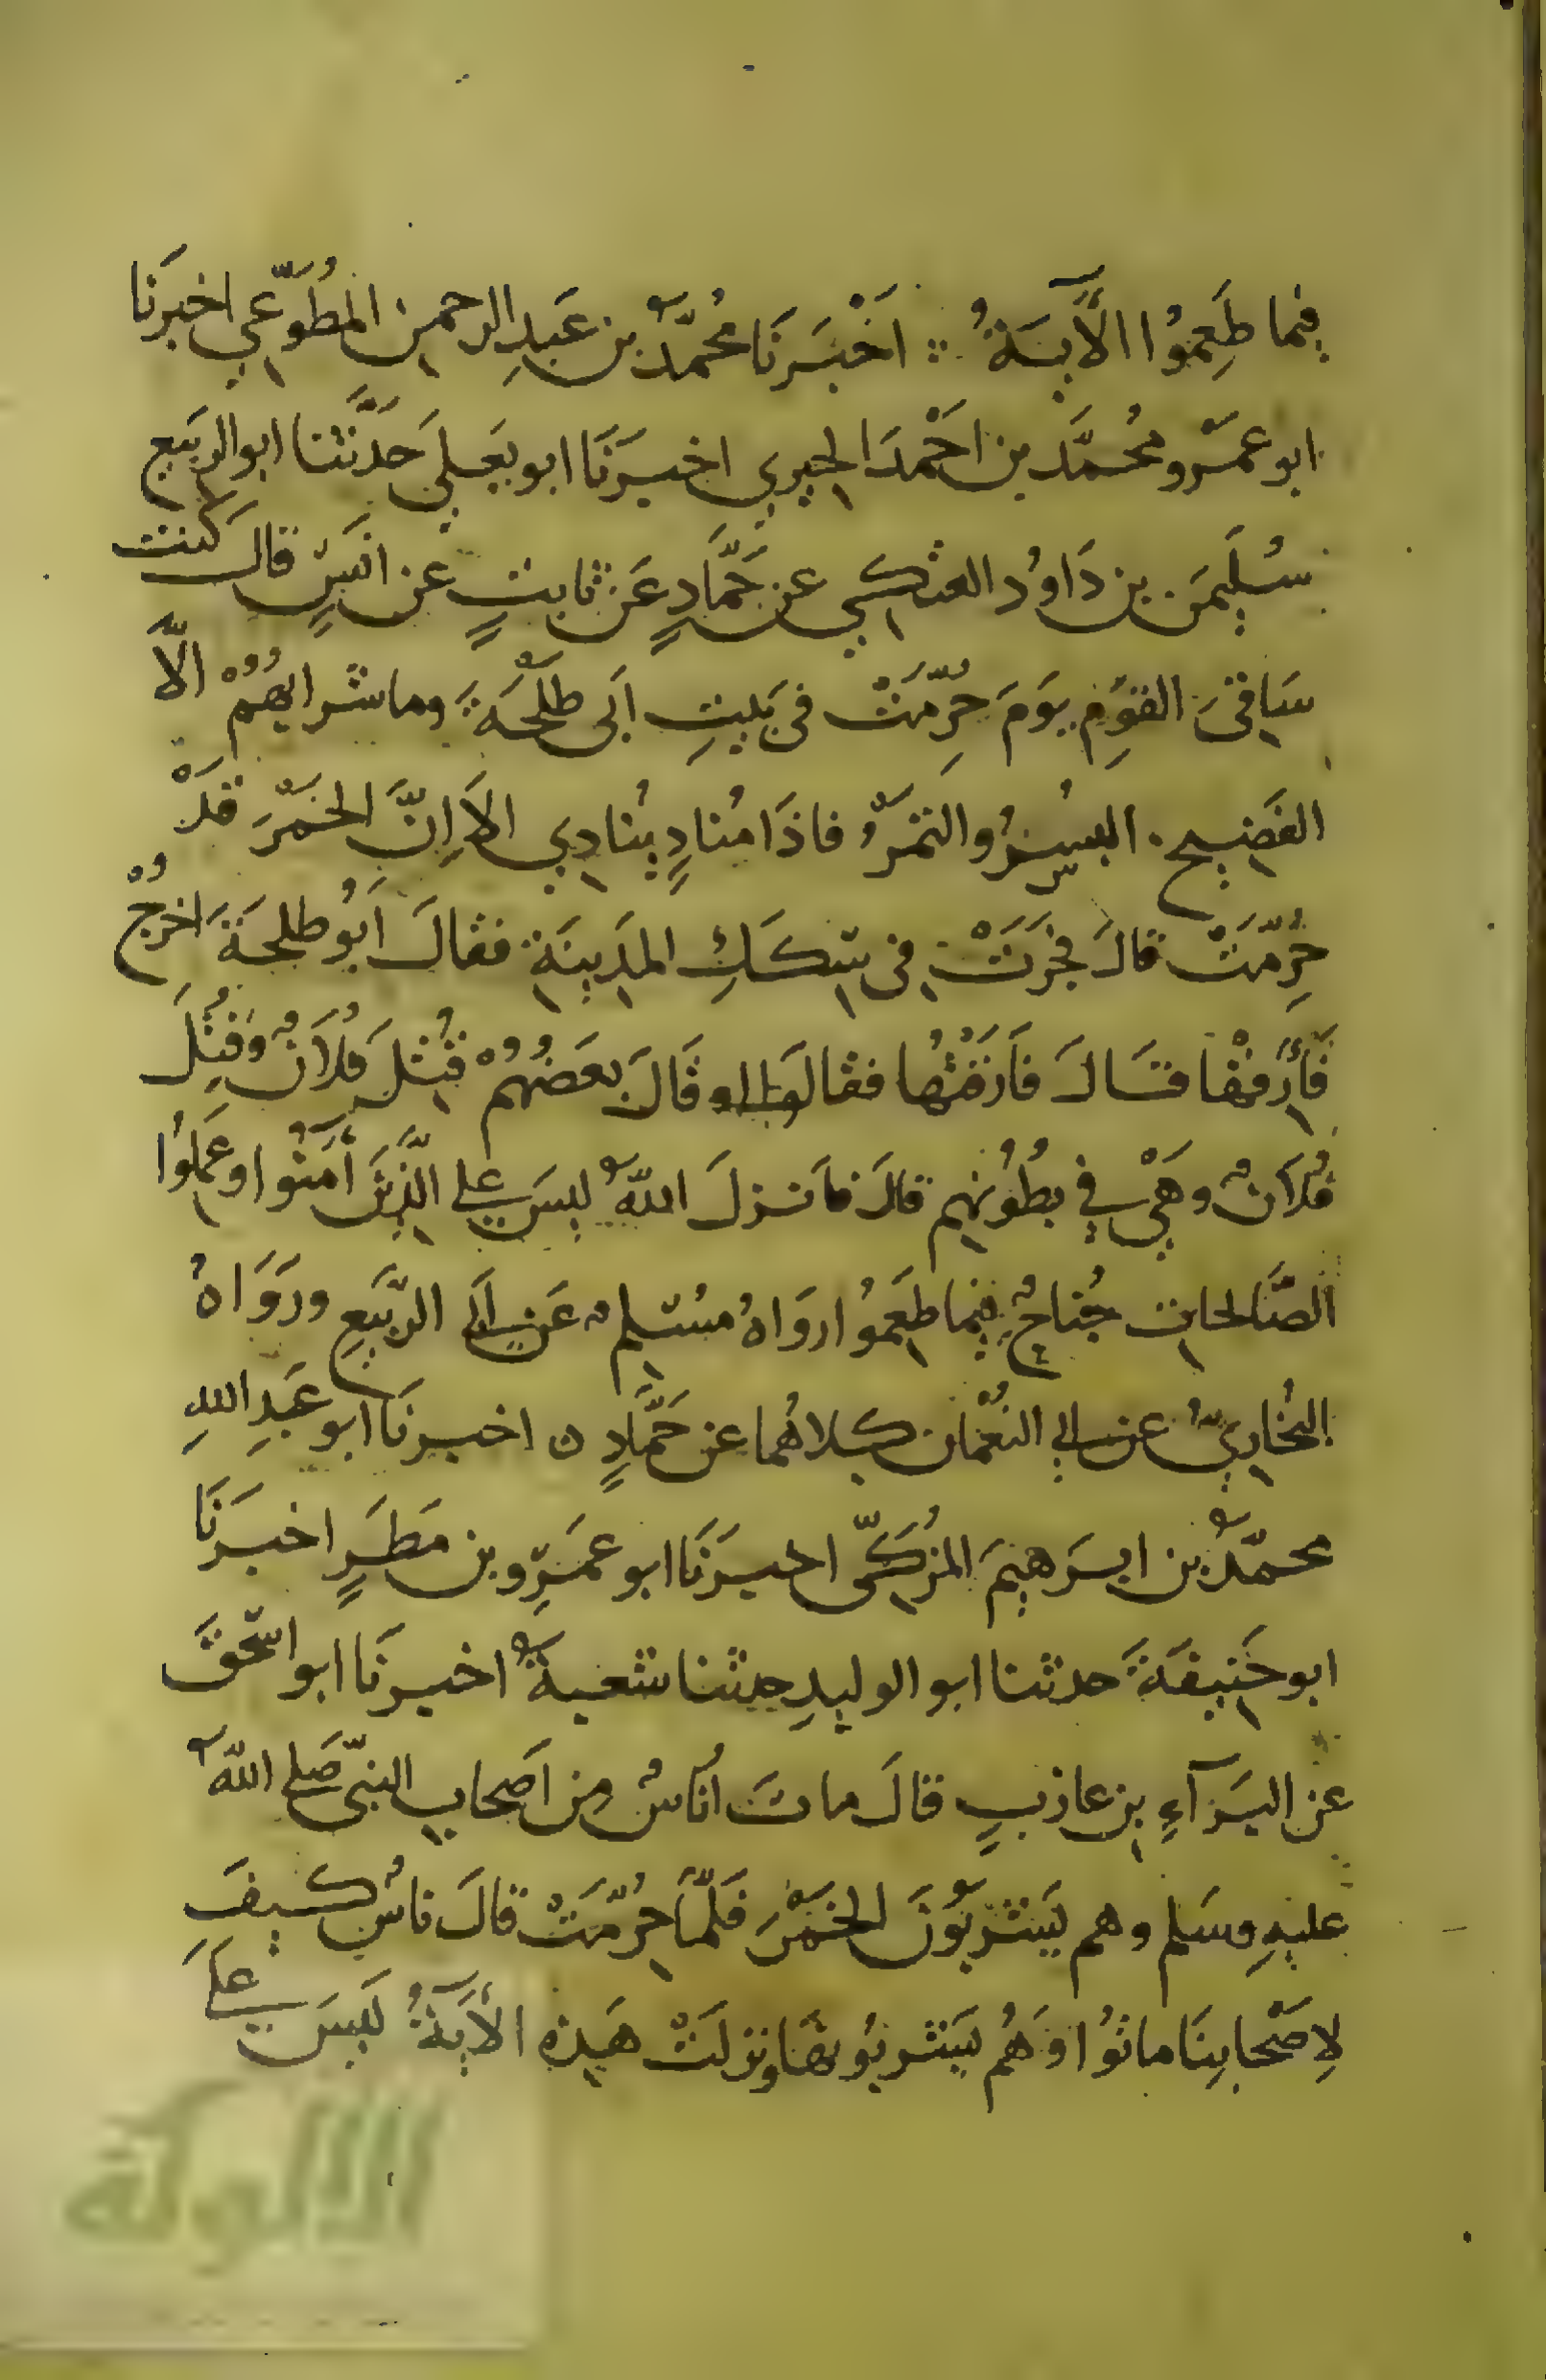 فيما طَعِمُوا الآيَةُ ∴ اَخْبَرَنَا مُحمَّدُ بن عَبدِ الرحمن المُطَّوِّعي اخبرَنَا
ابو عمْرو مُحمَّد بن اَحْمدَ الحِيرِي اخبرَنَا ابو يَعلي حَدَّثنا ابو الرَبيع
سُلَيمَن بن دَاوُد العتكي عن حَمَّادٍ عَن ثابتٍ عن انَسٍ قال كُنت
سَاقيَ القَوِم يَومَ حُرِّمَتْ في بَيتِ اَبى طَلْحَةَ وما شرابُهُمْ الَّا
الفَضيح البُسْرُ والتمْرُ فاذَا مُنادٍ يُنادِي اَلا اِنَّ الخَمْرَ قَدْ
حُرِّمَتْ قالَ فجَرَتْ في سِكَكِ المَدِينَةِ فقالَ اَبُو طلحَةَ اخرُجْ
فَأَرِقْها قَالَ فَاَرَقْتُها فقالَوا او قَالَ بَعضُهُمْ قُتِلَ فُلَانٌ وَقُتِلَ
فُلَانٌ وهَيْ فِي بُطُونِهِم قالَ فاَنزلَ اللّهُ ليسَ علي الَّذِينَ آمَنُوا وعَمِلُوا
الصَّالحاتِ جُناحٌ فيما طَعِمُوا رَوَاهُ مسْلمٌ عَن اَبي الرَّبيعِ ورَوَاهُ
البُخارِيُّ عن ابي النُعْمان كِلاهُما عن حَمَّادٍ ه اخبرنَا ابو عَبدِ اللهِ
محمَّدُ بن ابرَهيمَ المُزَكِّى اخبرَنَا ابو عمْرِو بن مَطَرٍ اخبرَنَا
ابو خَليفَةَ حدثنا ابو الوليدِ حدثنا شعبةُ اخبرنَا ابو اسحٰقَ
عن البَرَآءِ بن عازبٍ قالَ ماتَ اُنَاسٌ مِن اَصحابِ النبّى صَلى اللّهُ
عليهِ وسَلم وهم يَشرَبُونَ الخَمْرَ فَلَمَّا حُرِّمَتْ قالَ ناسٌ كيفَ
لِاصْحابِنَا ماتُوا وَهُم يَشربُونَها ونزلَتْ هَذِه الآيَةُ لَيسَ عَلَى
الألوكة